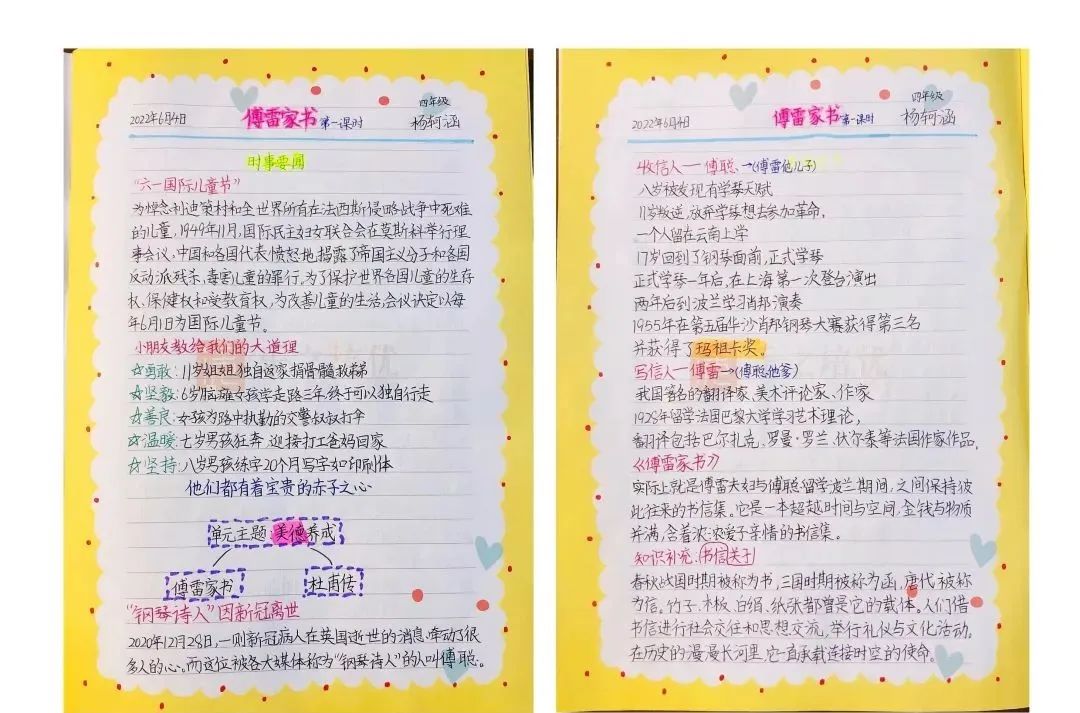 2022年6月4日 傅雷家书 第一课时 四年级 杨轲涵
时事要闻
"六一国际儿童节"
为悼念利迪策村和全世界所有在法西斯侵略战争中死难
的儿童,1949年11月,国际民主妇女联合会在莫斯科举行理
事会议,中国和各国代表愤怒地揭露了帝国主义分子和各国
反动派残杀、毒害儿童的罪行。为了保护世界各国儿童的生存
权、保健权和受教育权,为改善儿童的生活,会议决定以每
年6月1日为国际儿童节。
小朋友教给我们的大道理
☆勇敢:11岁姐姐独自返家捐骨髓救弟
☆坚毅:6岁脑瘫女孩学走路三年终于可以独自行走
☆善良:女孩为路中执勤的交警叔叔打伞
☆温暖:七岁男孩狂奔 迎接打工爸妈回家
☆坚持:八岁男孩练字20个月写字如印刷体
他们都有着宝贵的赤子之心
单元主题:美德养成
傅雷家书 杜甫传
"钢琴诗人"因新冠离世
2020年12月28日,一则新冠病人在英国逝世的消息,牵动了很
多人的心。而这位被各大媒体称为"钢琴诗人"的人叫傅聪。
2022年6月4日 傅雷家书 第一课时 四年级 杨轲涵
收信人一傅聪、→(傅雷他儿子)
八岁被发现有学琴天赋
11岁叛逆,放弃学琴想去参加革命,
一个人留在云南上学
17岁回到了钢琴面前,正式学琴
正式学琴一年后,在上海第一次登台演出
两年后到波兰学习肖邦演奏
1955年在第五届华沙肖邦钢琴大赛获得第三名
并获得了玛祖卡奖。
写信人一傅雷→(傅聪他爹)
我国著名的翻译家、美术评论家、作家
1928年留学法国巴黎大学学习艺术理论,
翻译包括巴尔扎克、罗曼·罗兰、伏尔泰等法国作家作品,
《傅雷家书》
实际上就是傅雷夫妇与傅聪留学波兰期间,之间保持彼
此往来的书信集。它是一本超越时间与空间,金钱与物质
并满,含着浓浓爱子亲情的书信集。
知识补充:书信关于
春秋战国时期被称为书,三国时期被称为函,唐代被称
为信。竹子、木板、白绢、纸张都曾是它的载体。人们借
书信进行社会交往和思想交流,举行礼仪与文化活动。
在历史的漫漫长河里,它一直承载连接时空的使命。